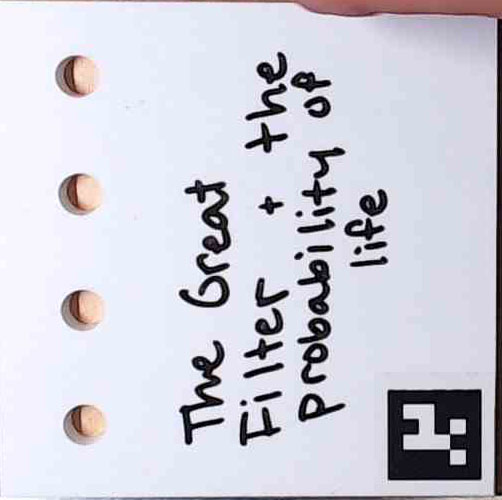 The Great
Filter + the
probability of
life